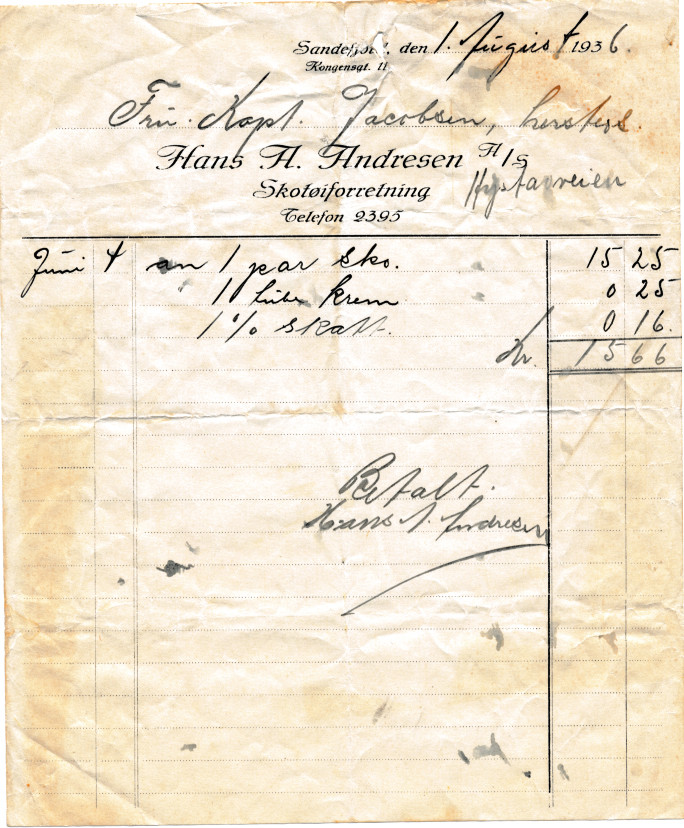 Sandefjord, den 1. August 1936.
Kongensgt. 11
Fru. Kapt. Jacobsen,
Hans A. Andresen A/s
Skotøiforretning
Hystadveien
Telefon 2395
Juni 4 an 1 par sko. 15 25
1 tube krem 0 25
1% skatt. 0 16.
Kr. 15 66
Betalt.
Hans A. Andresen